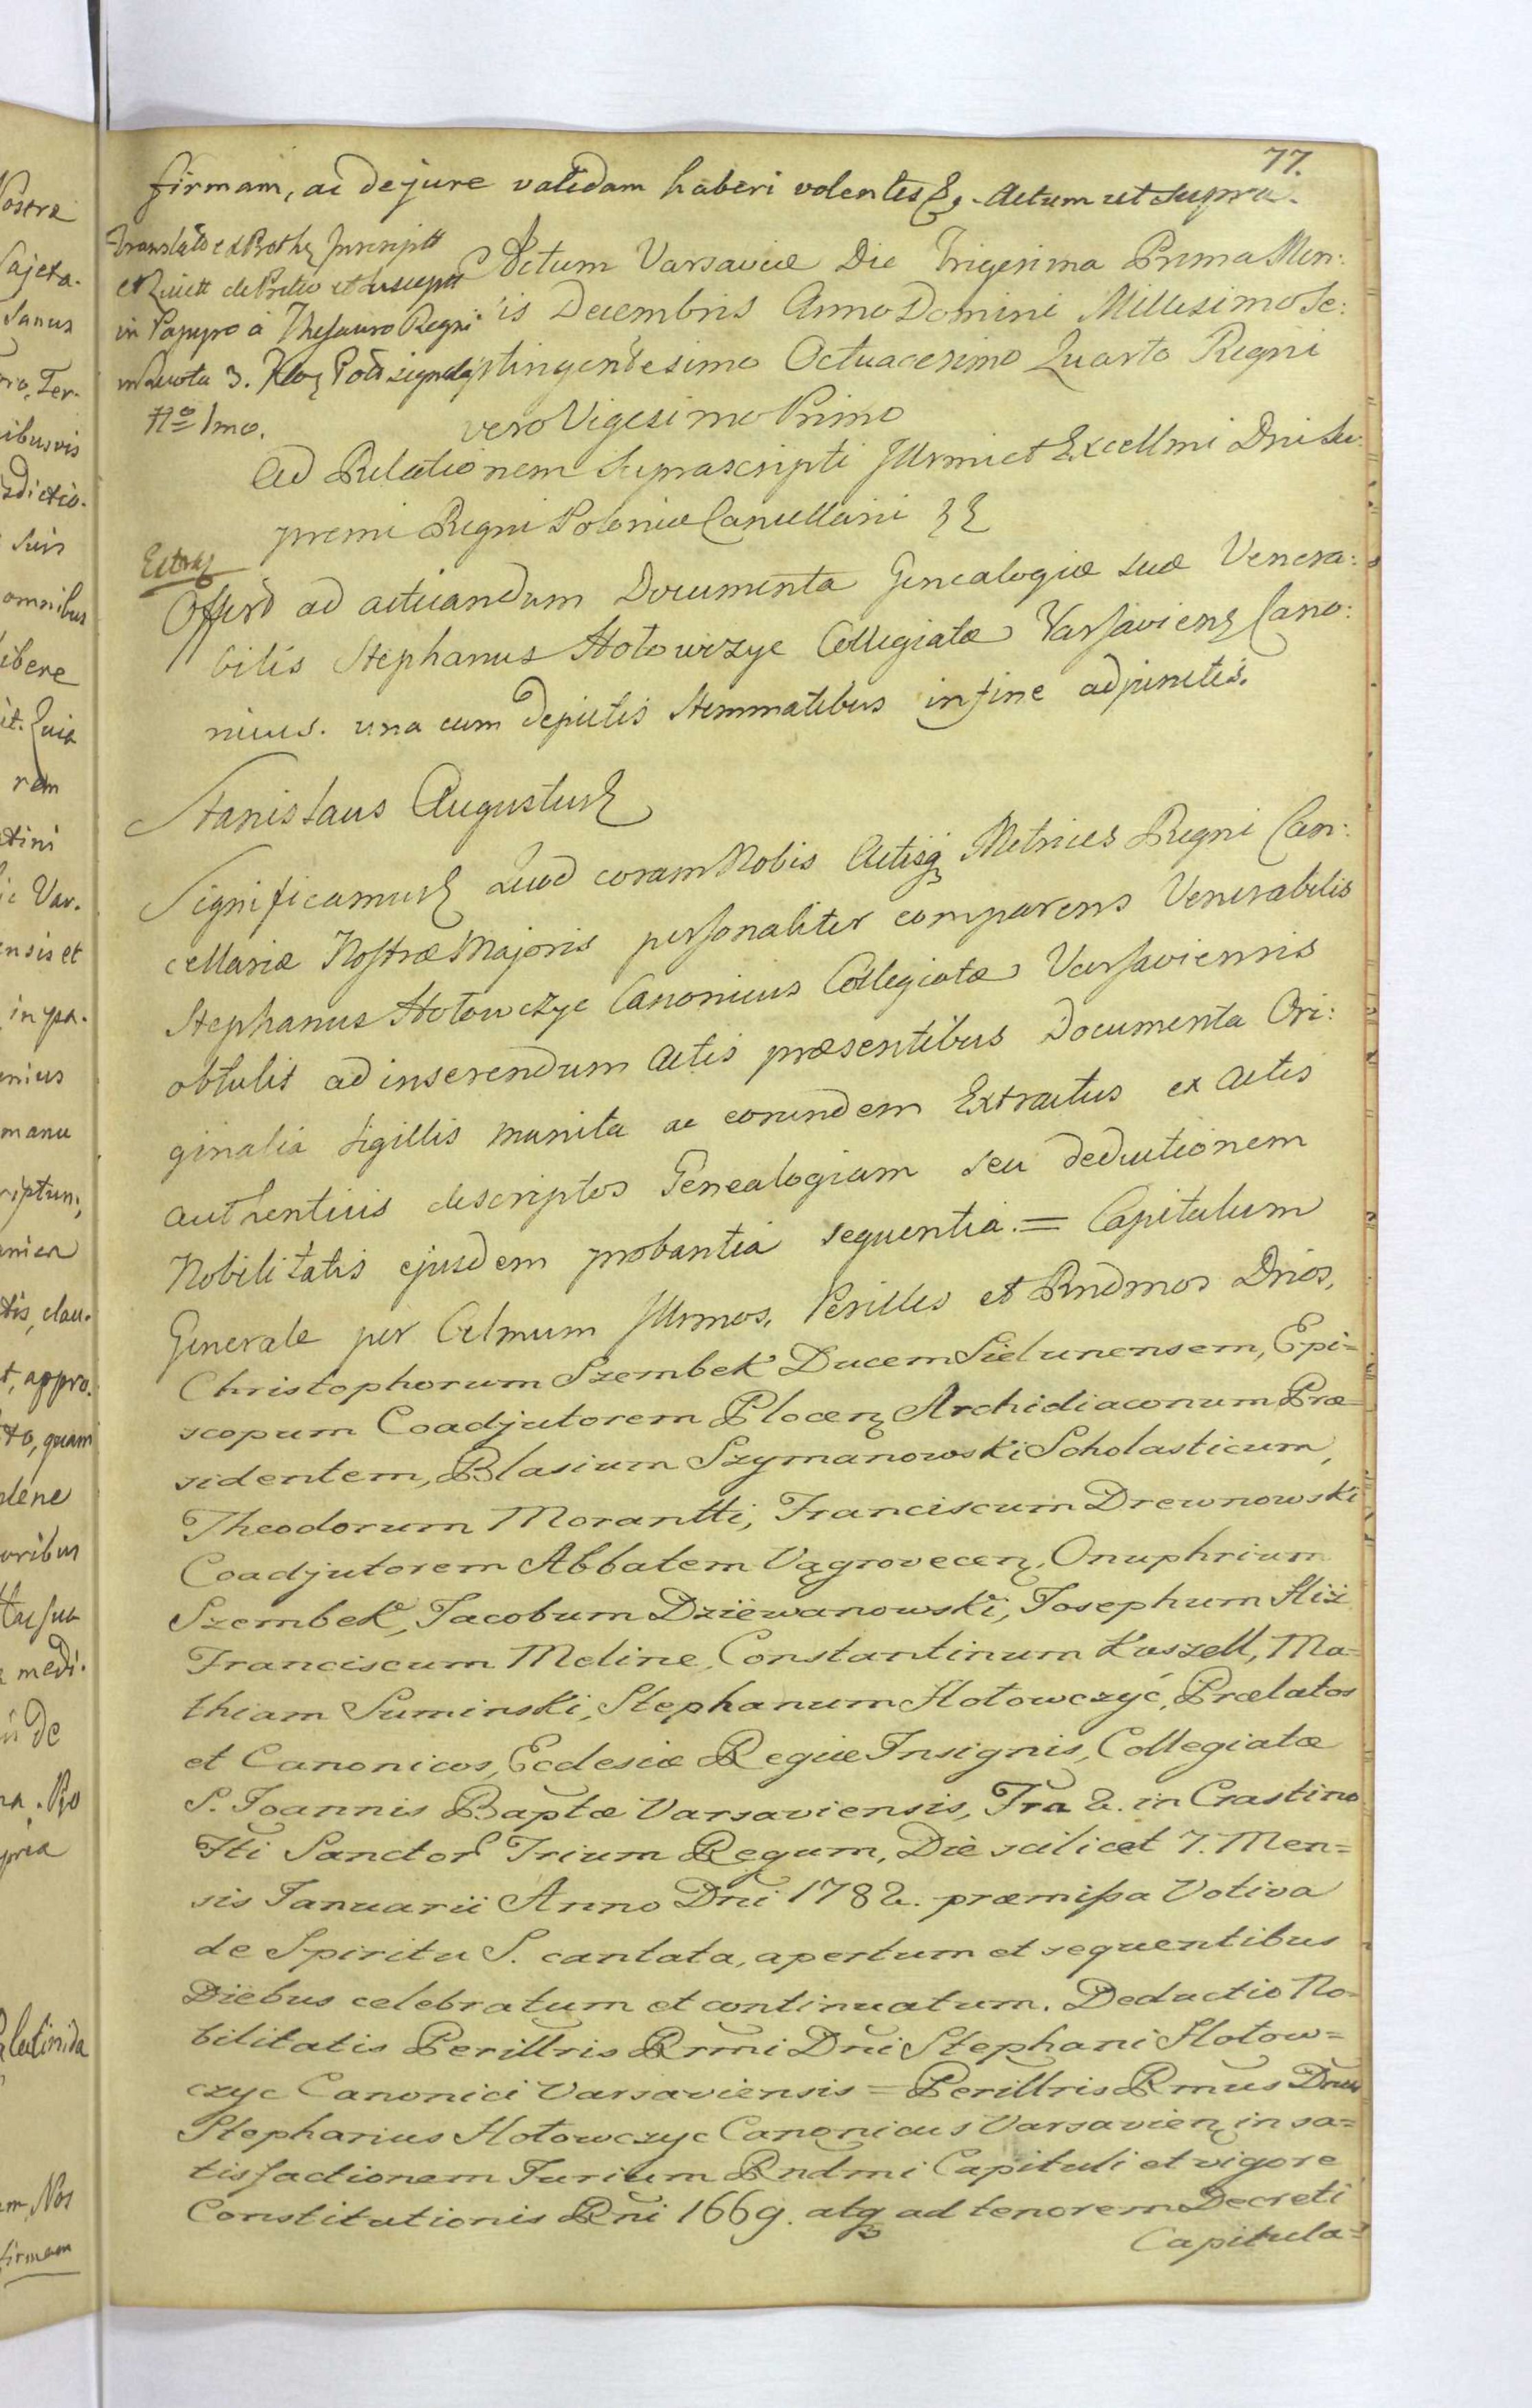 77.
firmam, ac de jure validam haberi volentes &. Actum ut Supra.
Actum Varsaviæ Die Trigesima Prima Men:
in Papyro à Thesauro Regni
sis Decembris Anno Domini Millesimo Se:
ptingentesimo Octuagesimo Quarto Regni
Nº 1mo.
vero Vigesimo Primo
Ad Relationem Suprascripti Illrmi et Excellmi Dni Su:
premi Regni Poloniæ Cancellarii
Offert ad acticandum Documenta Genealogiæ suæ Venera:
bilis Stephanus Hołowczyc Collegiatæ Varsavien Cano:
nicus. una cum depictis Stemmatibus in fine adjunctis.
Stanislaus Augustus
Significamus Quod coram Nobis Actisq Metrices Regni Can:
cellariæ Nostræ Majoris personaliter comparens Venerabilis
Stephanus Hołowczyc Canonicus Collegiatæ Varsaviensis
obtulit ad inserendum Actis præsentibus Documenta Ori:
ginalia sigillis munita ac eorundem Extractus ex Actis
authenticis descriptos Genealogiam seu deductionem
Nobilitatis ejusdem probantia sequentia. = Capitulum
Generale per Celmum Illrmos, Perilles et Rndmos Dnos,
Christophorum Szembek Ducem Sielunensem, Epi=
scopum Coadjutorem Plocen Archidiaconum Præ=
sidentem, Blasium Szymanowski Scholasticum,
Theodorum Morantti, Franciscum Drewnowski
Coadjutorem Abbatem Vągrovecen, Onuphrium
Szembek, Jacobum Dziewanowski, Josephum Hiż
Franciscum Meline, Constantinum Kuszell, Ma=
thiam Suminski, Stephanum Hołowczyć, Prælatos
et Canonicos, Ecclesiæ Regiæ Insignis, Collegiatæ
S. Joannis Baptæ Varsaviensis, Fra 2. in Crastino
Fti Sanctor Trium Regum, Die scilicet 7. Men=
sis Januarii Anno Dni 1782. præmissa Votiva
de Spiritu S. cantata, apertum et sequentibus
Diebus celebratum et continuatum. Deductio No=
bilitatis Perillris Rrmi Dni Stephani Hołow=
czyc Canonici Varsaviensis = Perillris Rmus Dnus
Stephanus Hołowczyc Canonicus Varsavien in sa=
tisfactionem Jurium Rndmi Capituli et vigore
Constitutionis Rni 1669. atq ad tenorem Decreti
Capitula=